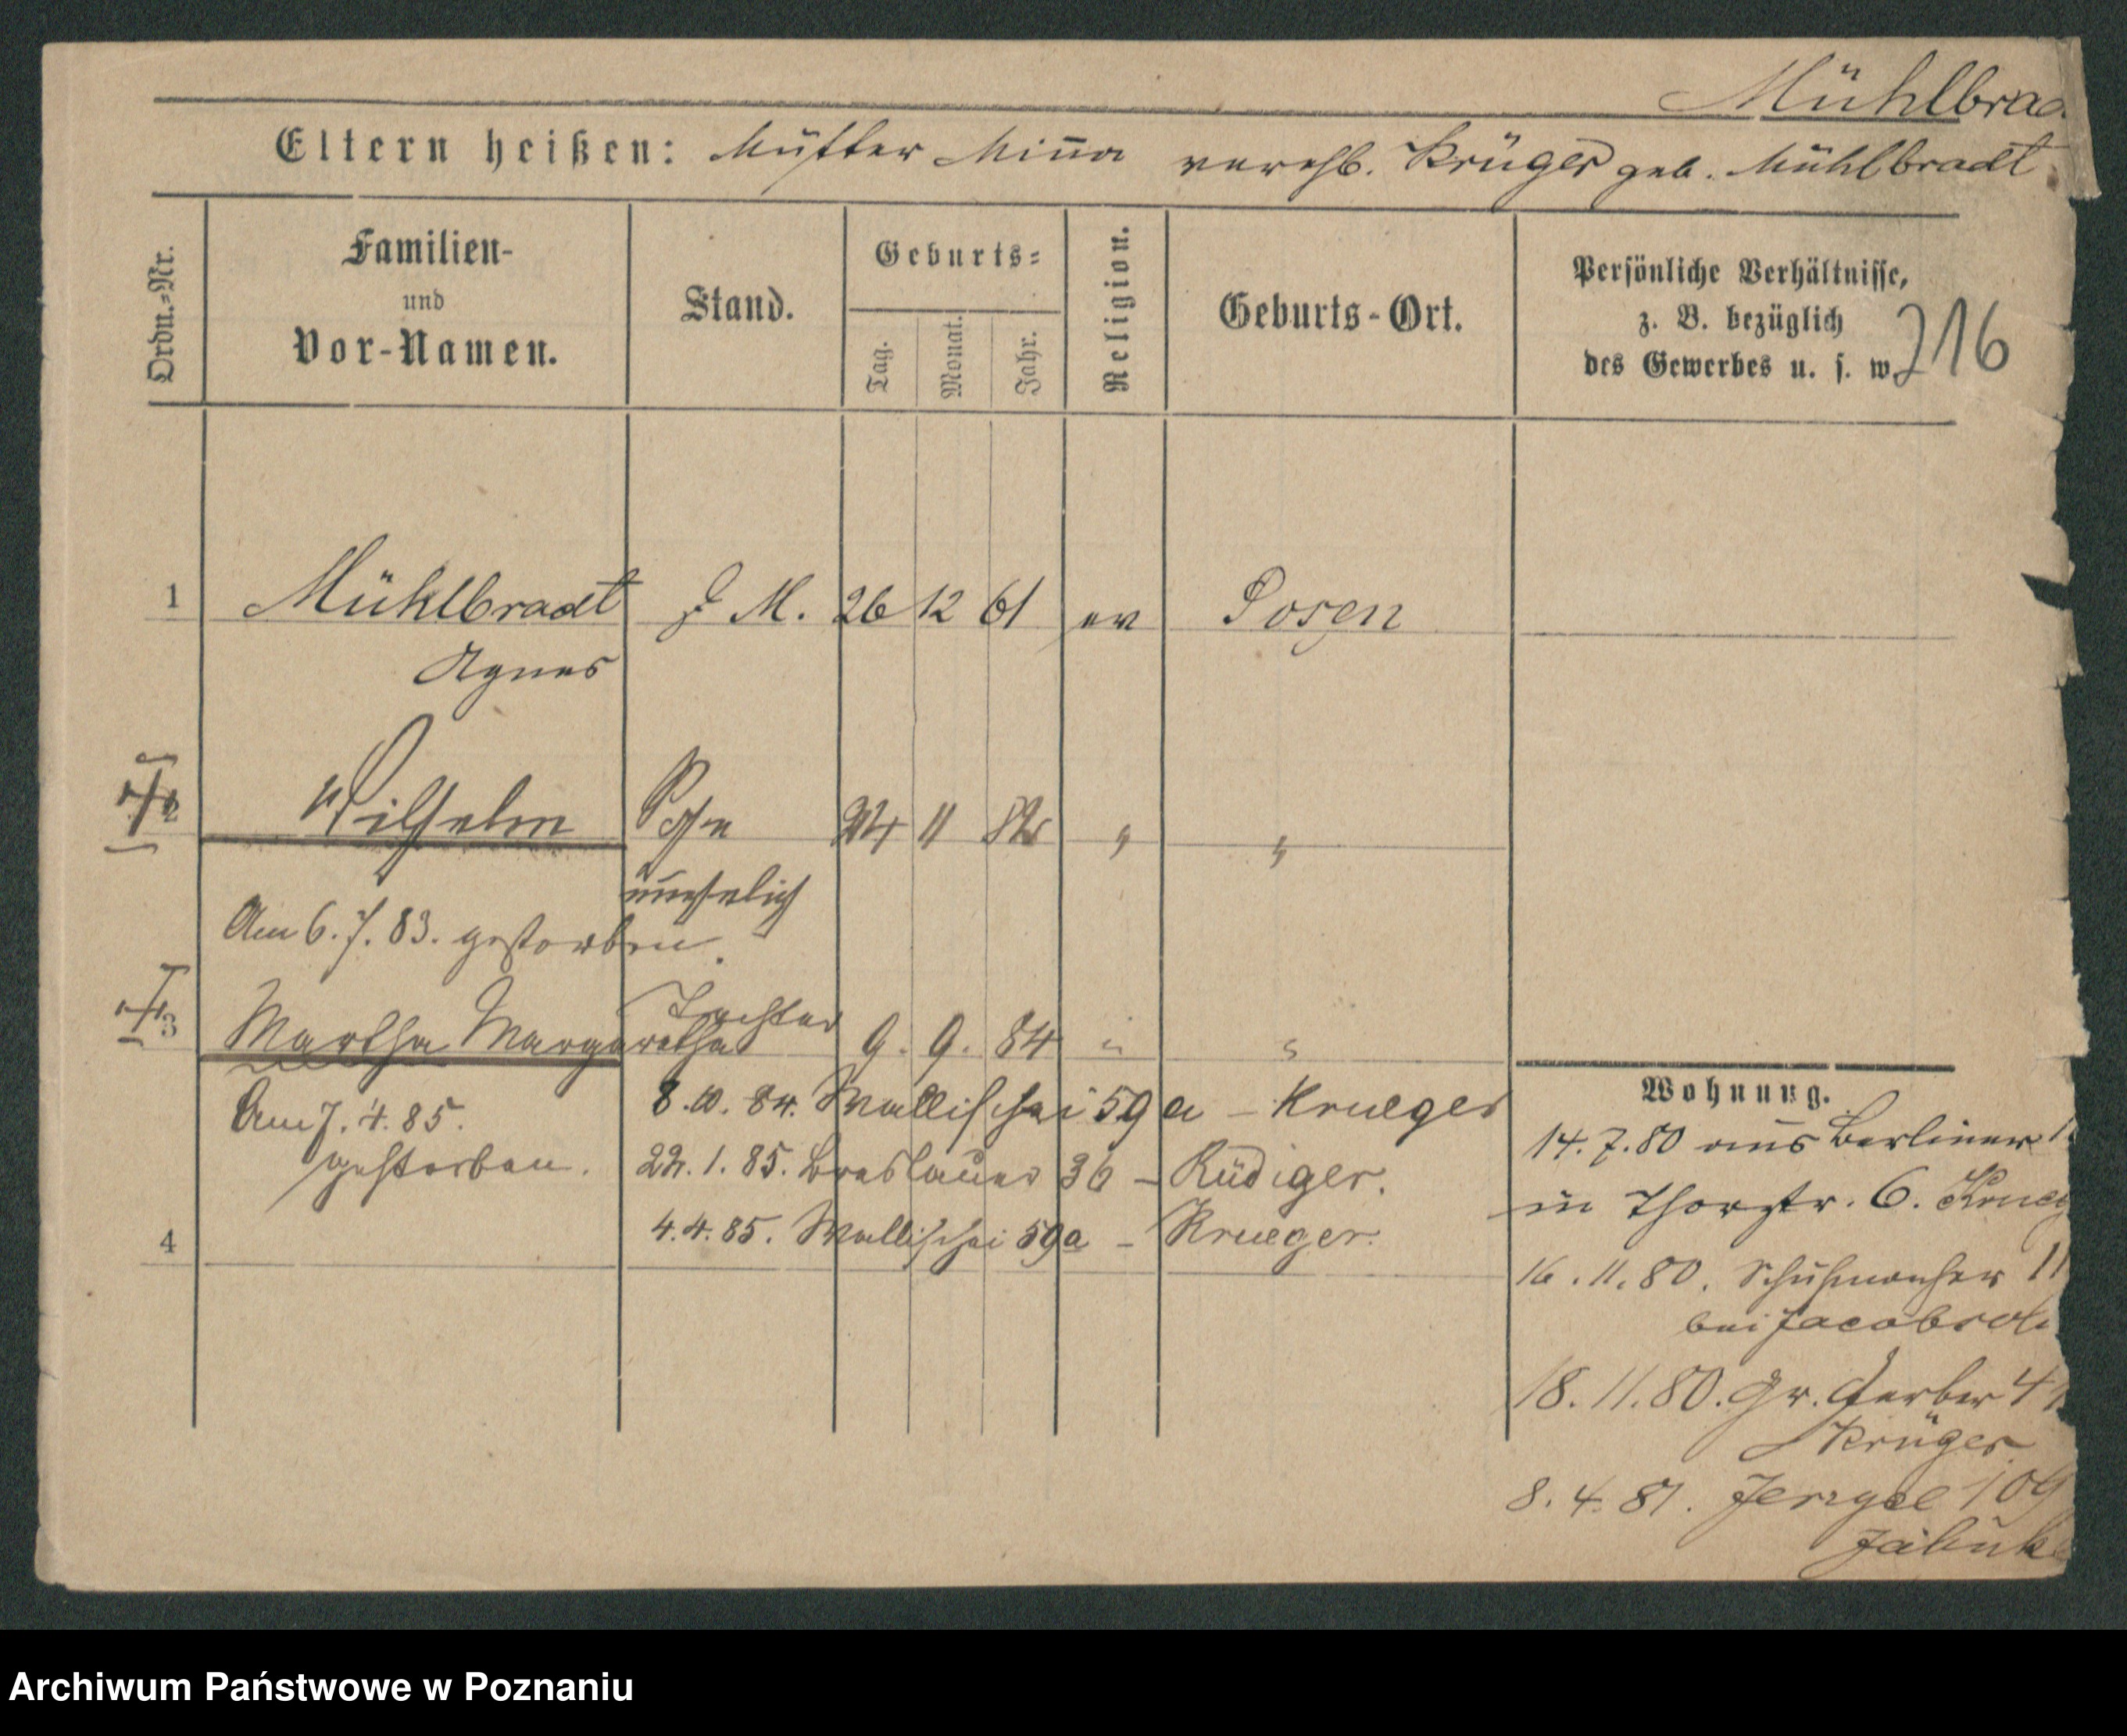 Mühlbrad
Eltern heißen: Mutter Minna verehl. Krüger geb. Mühlbradt
Ordn.-Nr.
Familien-
und
Vor-Namen.
Stand.
Geburts-
Tag.
Monat.
Jahr.
Religion.
Geburts-Ort.
Persönliche Verhältnisse,
z. B. bezüglich
des Gewerbes u. s. w.
216
1 Mühlbradt M. 26 12 61 ev Posen
Agnes
2 Wilhelm Sohn 24 11 82 " "
unehelich
Am 6. 7. 83. gestorben.
3 Martha Margaretha Tochter 9. 9. 84 " "
Wohnung.
Am 7. 4. 85.
gestorben.
8. 10. 84. Wallischei 59a – Krueger
22. 1. 85. Breslauer 36 – Rüdiger.
4. 4. 85. Wallischei 59a – Krueger.
4
14. 7. 80 aus Berliner
in Thorstr. 6.
16. 11. 80. Schuhmacher 11
bei
18. 11. 80. Gr. Gerber 4
Krüger
8. 4. 81. Jerzyce 109
Archiwum Państwowe w Poznaniu